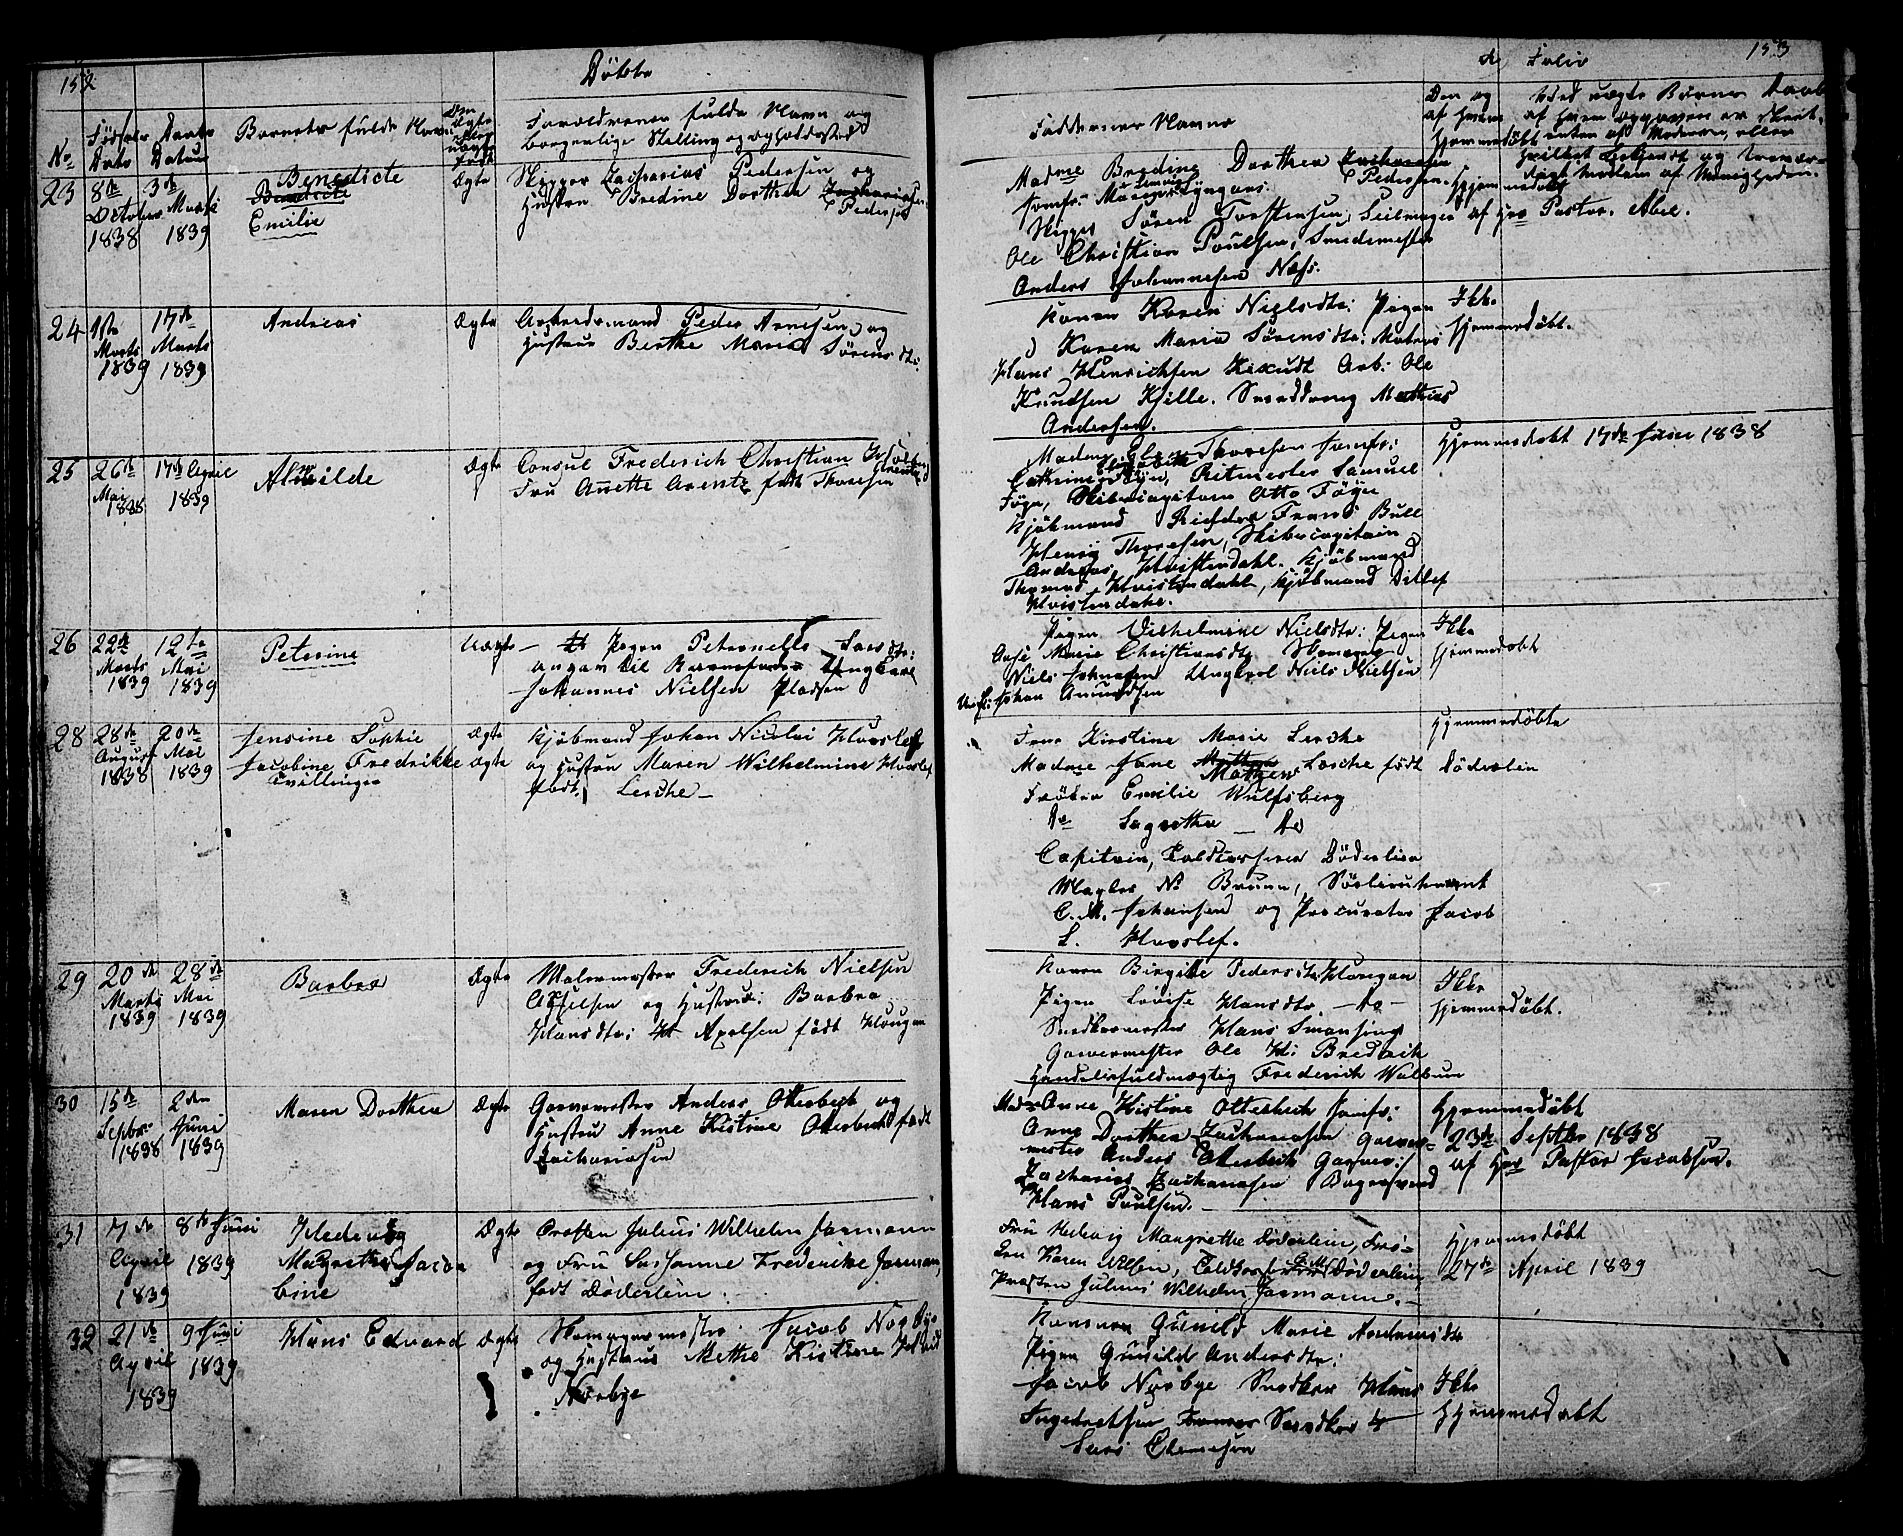 152
Døbte
No
Fødsels Dato
Daabs Datum
Barnets fulde Navn
Om Ægte eller uægte født
Forældrenes fulde Navn og
borgerlige Stilling og Opholdssted
23
8de October 1838
3de Marts 1839
Benedicte
Emilie
Ægte
Skipper Zacharias Pedersen og
Hustru Bredine Dorthea Zachariasen
Pedersen
24
1ste Marts 1839
17de Marts 1839
Andreas
Ægte
Arbeidsmand Peder Arnesen og
Hustrue Berthe Maria Sørensdtr:
25
26de Mai 1838
17de April 1839
Alvilde
Ægte
Consul Frederich Christian Holben Arentz
Fru Anette Arentz født Thoresen
26
22de Marts 1839
12te Mai 1839
Peterine
Uægte
Pigen Petronelle Larsdtr:
angav til Barnefader Ungkarl
Johannes Nielsen Pladsen
28
28de August 1838
20de Mai 1839
Jensine Sophie
Jacobine Fredrikke
Tvillinger
Ægte
Ægte
Kjøbmand Johan Nicolai Havslef
og Hustru Maren Wilhelmine Havslef
født Lerche
29
20de Marts 1839
28de Mai 1839
Barbra
Ægte
Malermester Frederich Nielsen
Axelsen og Hustrue: Barbra
Hansdtr: Axelsen født Hougan
30
15de Septbr: 1838
2den Juni 1839
Maren Dorthea
Ægte
Garvermester Anders Otterbech og
Hustru Anne Kistine Otterbech født
Zachariasen
31
7de April 1839
8de Juni 1839
Hedevig
Magrethe Jaco-
bine
Ægte
Presten Julius Wilhelm Jarmann
og Fru Susanne Fredericke Jarmann,
født Døderlein
32
21de April 1839
9 Juni 1839
Hans Edvard
Ægte
Skomagermester Jacob Norbye
og Hustrue Methe Kistine
Norbye
153
Folio
Faddernes Navne
Om og
af hvem
hjemmedøbt
Ved uægte Børns Daab
af hvem opgaven er skeet,
enten af Moderen, eller
Madme Bredine Dorthea Zachariasen
Pedersen
Skipper Søren Torstensen, Seilmager
Ole Christian Poulsen, Smedemester
Anders Johannesen Næss.
Hjemmedøbt
af Hr Pastor Abel.
Konen Karen Nielsdtr: Pigen
Karen Maria Sørensdtr: Matros
Hans Henrichsen Arb: Ole
Knudsen Kjille. Smeddreng Mathias
Andersen.
Ikke
hjemmedøbt.
Madme Elisabeth Thoresen Jomfr:
Cathrine Føyn, Ritmester Samuel
Føyn, Skibscapitain Otto Føyn
Kjøbmand Richard Frants Bull
Henrij Thoresen, Skibscapitain
Andreas Hvistendahl. Kjøbmand
Thomas Hvistendahl, Kjøbmand Ditlef
Hvistendahl.
Hjemmedøbt 17de Juni 1838
Pigen Vilhelmine Nielsdtr: Pigen
Anse Marie Christiansdtr
Niels Johnsen Ungkarl Niels Nielsen
Johan Amundsen
Ikke
hjemmedøbt
Frue Kirstine Marie Lerche
Madme Jane Mathea Lerche født
Frøken Emilie Wulfsberg
Do Lagretha Do
Capitain, Toldcasserer Døderlein
Magler N: Bruun, Søelieutenant
C. M. Johansen og Procurator Jacob
L. Havslef.
Hjemmedøbte
Døderlein
Konen Birgitte Pedersdtr Hovegan
Pigen Lovise Hansdtr. Do
Snedkermester Hans Simonsing
Garvermester Ole H: Bredrich
Handelsfuldmægtig Frederich Walbum
Ikke
hjemmedøbt.
Mad: Anne Kistine Otterbech Jomfr:
Anne Dorthea Zachariasen Garver-
mester Anders Otterbech Garver:
Zacharias Zachariasen Bagersvend
Hans Poulsen.
Hjemmedøbt
23de Septbr 1838
af Hr Pastor Jacobsen.
Fru Hedevig Margrethe Døderlein, Frø-
ken Karen Nilsen, Toldkasserer C. M. Døderlein
Presten Julius Wilhelm Jarmann.
Hjemmedøbt
27de April 1839
Konen Gunild Marie Andersdtr
Pigen Gunild Andersdtr:
Jacob Norbye Snedker Hans
Ingebretsen Snedker
Lars Clemesen
Ikke
Hjemmedøbt